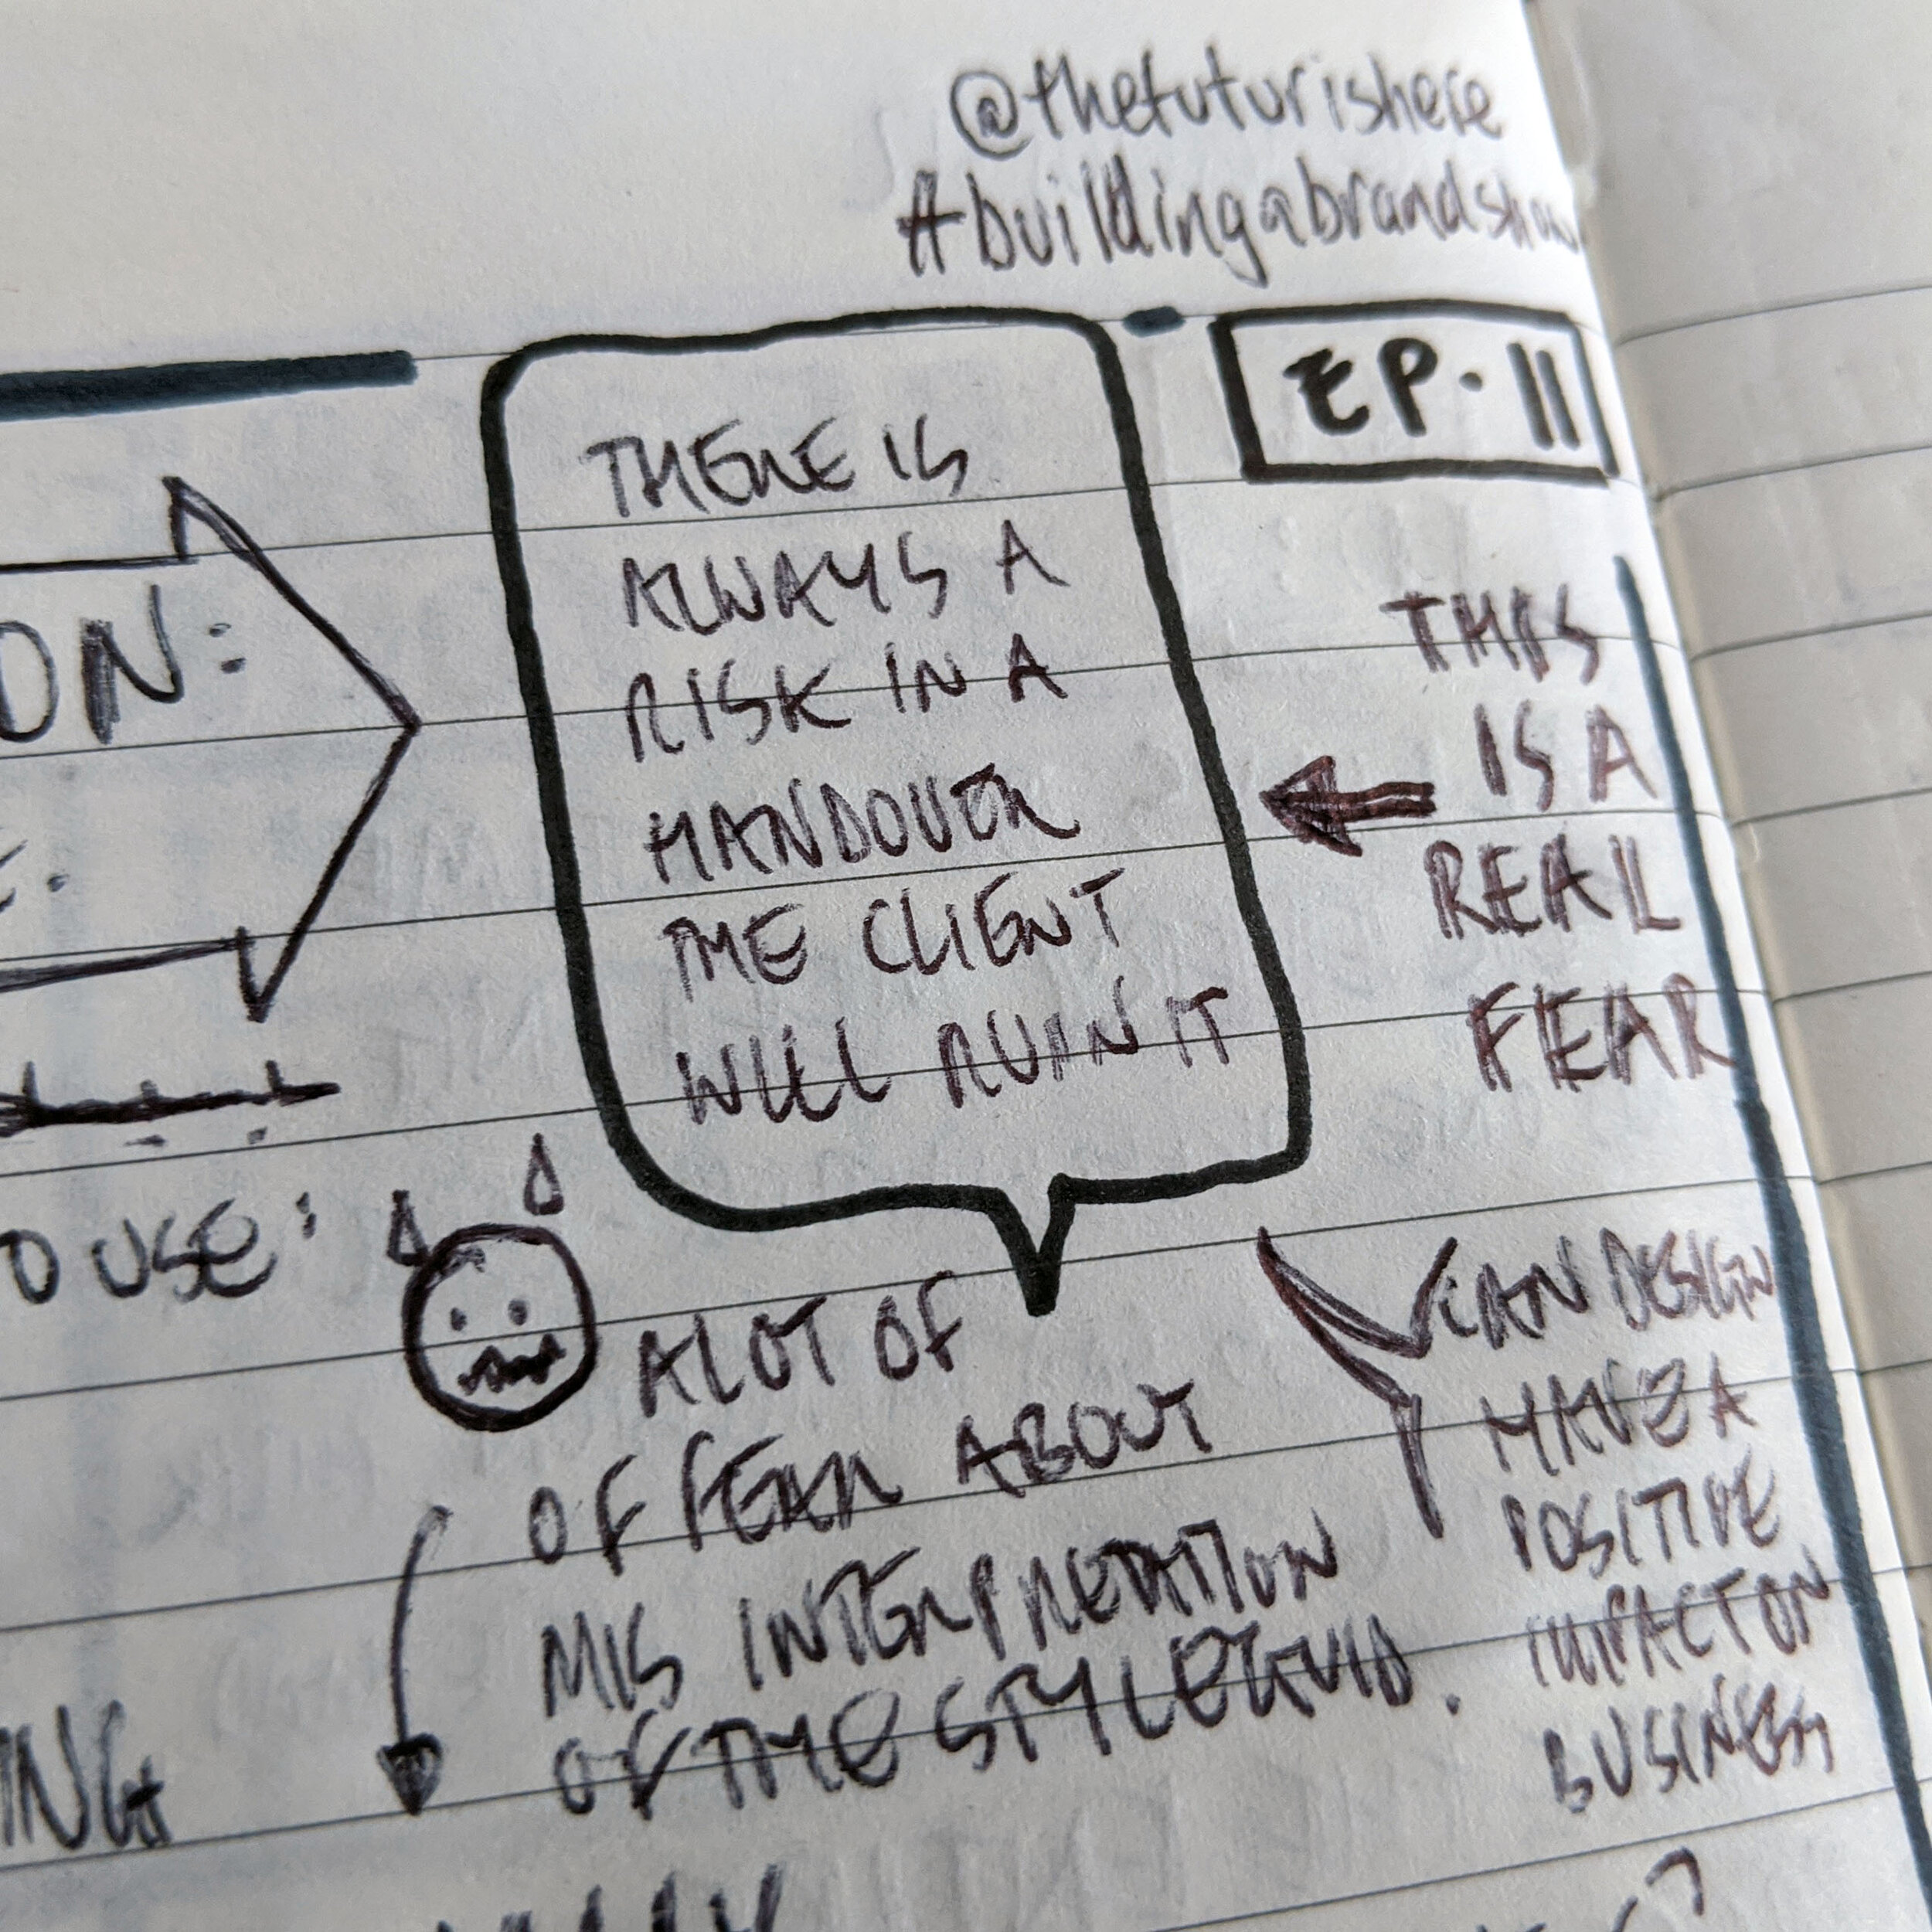 @thefuturishere
#buildingabrandshow
EP. 11
THERE IS
ALWAYS A
RISK IN A
HANDOVER
THE CLIENT
WILL RUIN IT
THIS
IS A
REAL
FEAR
ON:
E.
O USE:
A LOT OF
OF FEAR ABOUT
MIS INTERPRETATION
OF THE STYLEGUID.
CAN DESIGN
HAVE A
POSITIVE
IMPACT ON
BUSINESS
ING